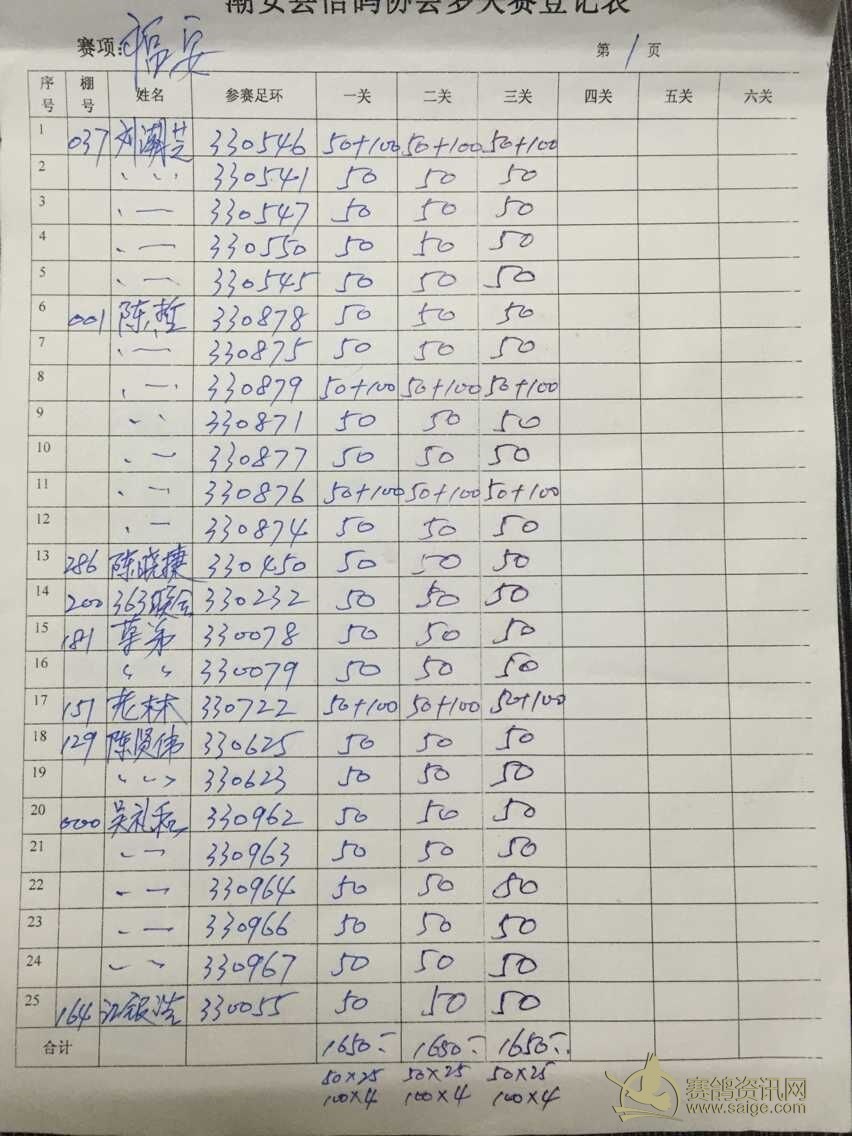 潮安县信鸽协会多关赛登记表
赛项: 福安 第 1 页
序号 棚号 姓名 参赛足环 一关 二关 三关 四关 五关 六关
1 037 刘潮芝 330546 50+100 50+100 50+100
2 〃 330541 50 50 50
3 、一 330547 50 50 50
4 、一 330550 50 50 50
5 、一 330545 50 50 50
6 001 陈哲 330878 50 50 50
7 、一 330875 50 50 50
8 、一 330879 50+100 50+100 50+100
9 〃 330871 50 50 50
10 、一 330877 50 50 50
11 、一 330876 50+100 50+100 50+100
12 、一 330874 50 50 50
13 286 陈晓捷 330450 50 50 50
14 200 363联会 330232 50 50 50
15 181 草弟 330078 50 50 50
16 〃 330079 50 50 50
17 151 老林 330722 50+100 50+100 50+100
18 129 陈贤伟 330625 50 50 50
19 〃 330623 50 50 50
20 000 吴礼和 330962 50 50 50
21 、一 330963 50 50 50
22 、一 330964 50 50 50
23 、一 330966 50 50 50
24 、一 330967 50 50 50
25 164 江银浩 330055 50 50 50
合计 1650- 1650- 1650-
50×25 50×25 50×25
100×4 100×4 100×4
赛鸽资讯网
www.saige.com